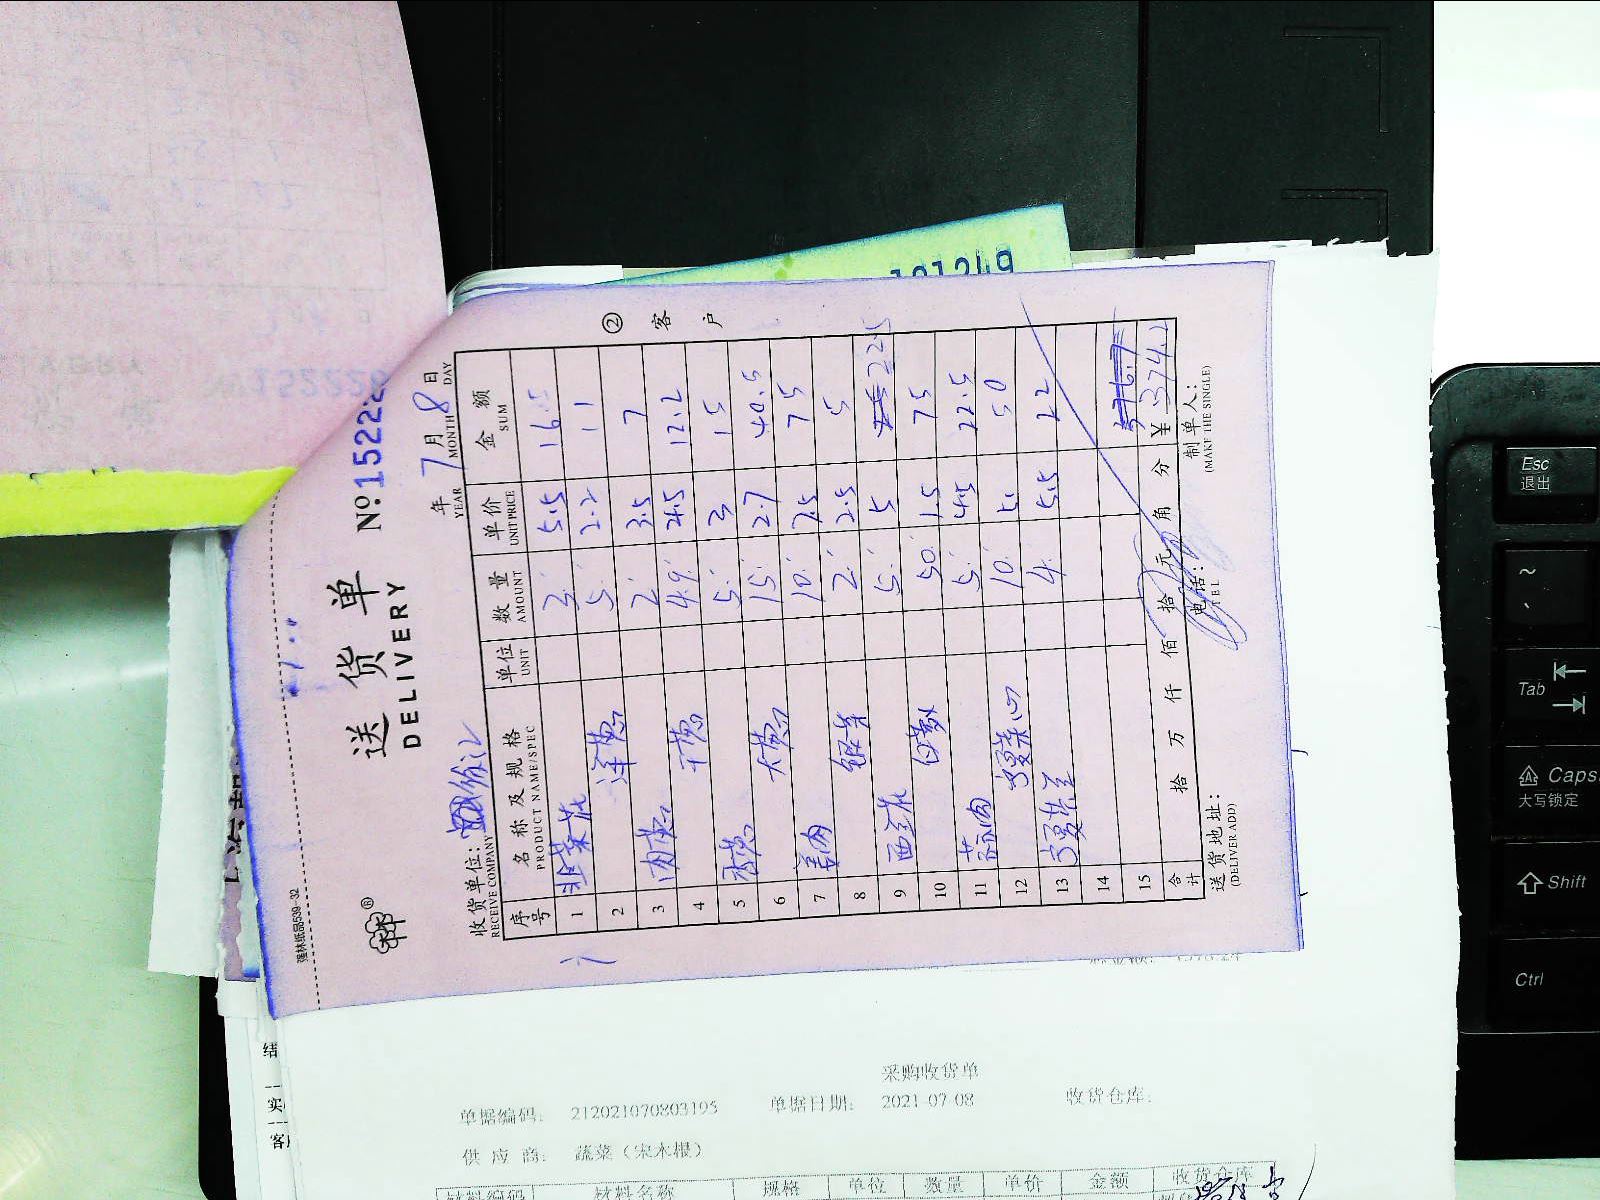 强林纸品539-32
送货单
DELIVERY
№ 15222
年 7月 8日
YEAR MONTH DAY
收货单位：
RECEIVE COMPANY
② 客户
序号 名称及规格 单位 数量 单价 金额
PRODUCT NAME/SPEC UNIT AMOUNT UNIT PRICE SUM
1 韭菜花 3. 5.5 16.5
2 洋葱 5. 2.2 11
3 肉葱 2. 3.5 7
4 干葱 4.9. 2.5 12.2
5 香葱 5. 3 15
6 大葱 15. 2.7 40.5
7 姜肉 10. 7.5 75
8 银芽 2. 2.5 5
9 西兰花 5. 5 22.5
10 白萝 50. 1.5 75
11 蒜肉 5. 4.5 22.5
12 10. 5. 50
13 4. 5.5 22
14
15
合计 拾 万 仟 佰 拾 元 角 分 ¥ 374.2
送货地址：
(DELIVER ADD)
电话：
TEL
制单人：
(MAKE THE SINGLE)
采购收货单
单据编码： 212021070803195 单据日期： 2021-07-08 收货仓库：
供应商： 蔬菜（宋木根）
材料编码 材料名称 规格 单位 数量 单价 金额 收货仓库
Esc
退出
~
Tab
Caps
大写锁定
Shift
Ctrl